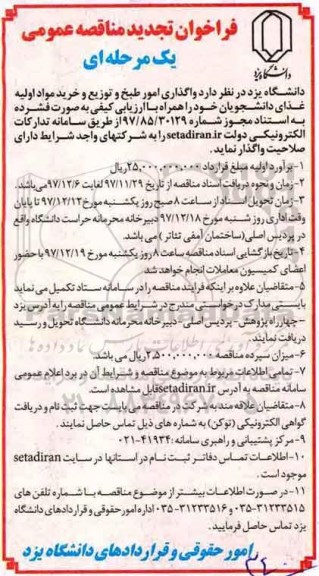 فراخوان تجدید مناقصه عمومی
یک مرحله ای
دانشگاه یزد
دانشگاه یزد در نظر دارد واگذاری امور طبخ و توزیع و خرید مواد اولیه
غذای دانشجویان خود را همراه با ارزیابی کیفی به صورت فشرده
به استناد مجوز شماره ۹۷/۸۵/۳۰۱۲۹ از طریق سامانه تدارکات
الکترونیکی دولت setadiran.ir را به شرکتهای واجد شرایط دارای
صلاحیت واگذار نماید.
۱- برآورد اولیه مبلغ قرارداد ۲۵,۰۰۰,۰۰۰,۰۰۰ریال
۲- زمان و نحوه دریافت اسناد مناقصه از تاریخ ۹۷/۱۱/۲۹ لغایت ۹۷/۱۲/۶ می‌باشد.
۳- زمان تحویل اسناد از ساعت ۸ صبح روز یکشنبه مورخ ۹۷/۱۲/۱۲ تا پایان
وقت اداری روز شنبه مورخ ۹۷/۱۲/۱۸ دبیرخانه محرمانه حراست دانشگاه واقع
در پردیس اصلی(ساختمان آمفی تئاتر) می باشد
۴- تاریخ بازگشایی اسناد مناقصه ساعت ۸ روز یکشنبه مورخ ۹۷/۱۲/۱۹ با حضور
اعضای کمیسیون معاملات انجام خواهد شد
۵- متقاضیان علاوه بر اینکه فرایند مناقصه را در سامانه ستاد تکمیل می نماید
بایستی مدارک درخواستی مندرج در شرایط عمومی مناقصه را به آدرس یزد
- چهارراه پژوهش - پردیس اصلی - دبیرخانه محرمانه دانشگاه تحویل و رسید
دریافت نمایند.
۶- میزان سپرده مناقصه ۲,۵۰۰,۰۰۰,۰۰۰ ریال می باشد.
۷- تمامی اطلاعات مربوط به موضوع مناقصه و شرایط آن در برد اعلام عمومی
سامانه مناقصه به آدرس setadiran.ir قابل مشاهده است.
۸- متقاضیان علاقه مند به شرکت در مناقصه می بایست جهت ثبت نام و دریافت
گواهی الکترونیکی (توکن) به شماره های ذیل تماس حاصل نمایند.
۹- مرکز پشتیبانی و راهبری سامانه :۴۱۹۳۴-۰۲۱
۱۰- اطلاعات تماس دفاتر ثبت نام در استانها در سایت setadiran
موجود است .
۱۱- در صورت اطلاعات بیشتر از موضوع مناقصه با شماره تلفن های
۰۳۵-۳۱۲۳۳۵۱۵ و ۰۳۵-۳۱۲۳۳۵۱۶ اداره امور حقوقی و قراردادهای دانشگاه
یزد تماس حاصل فرمایید.
امور حقوقی و قراردادهای دانشگاه یزد